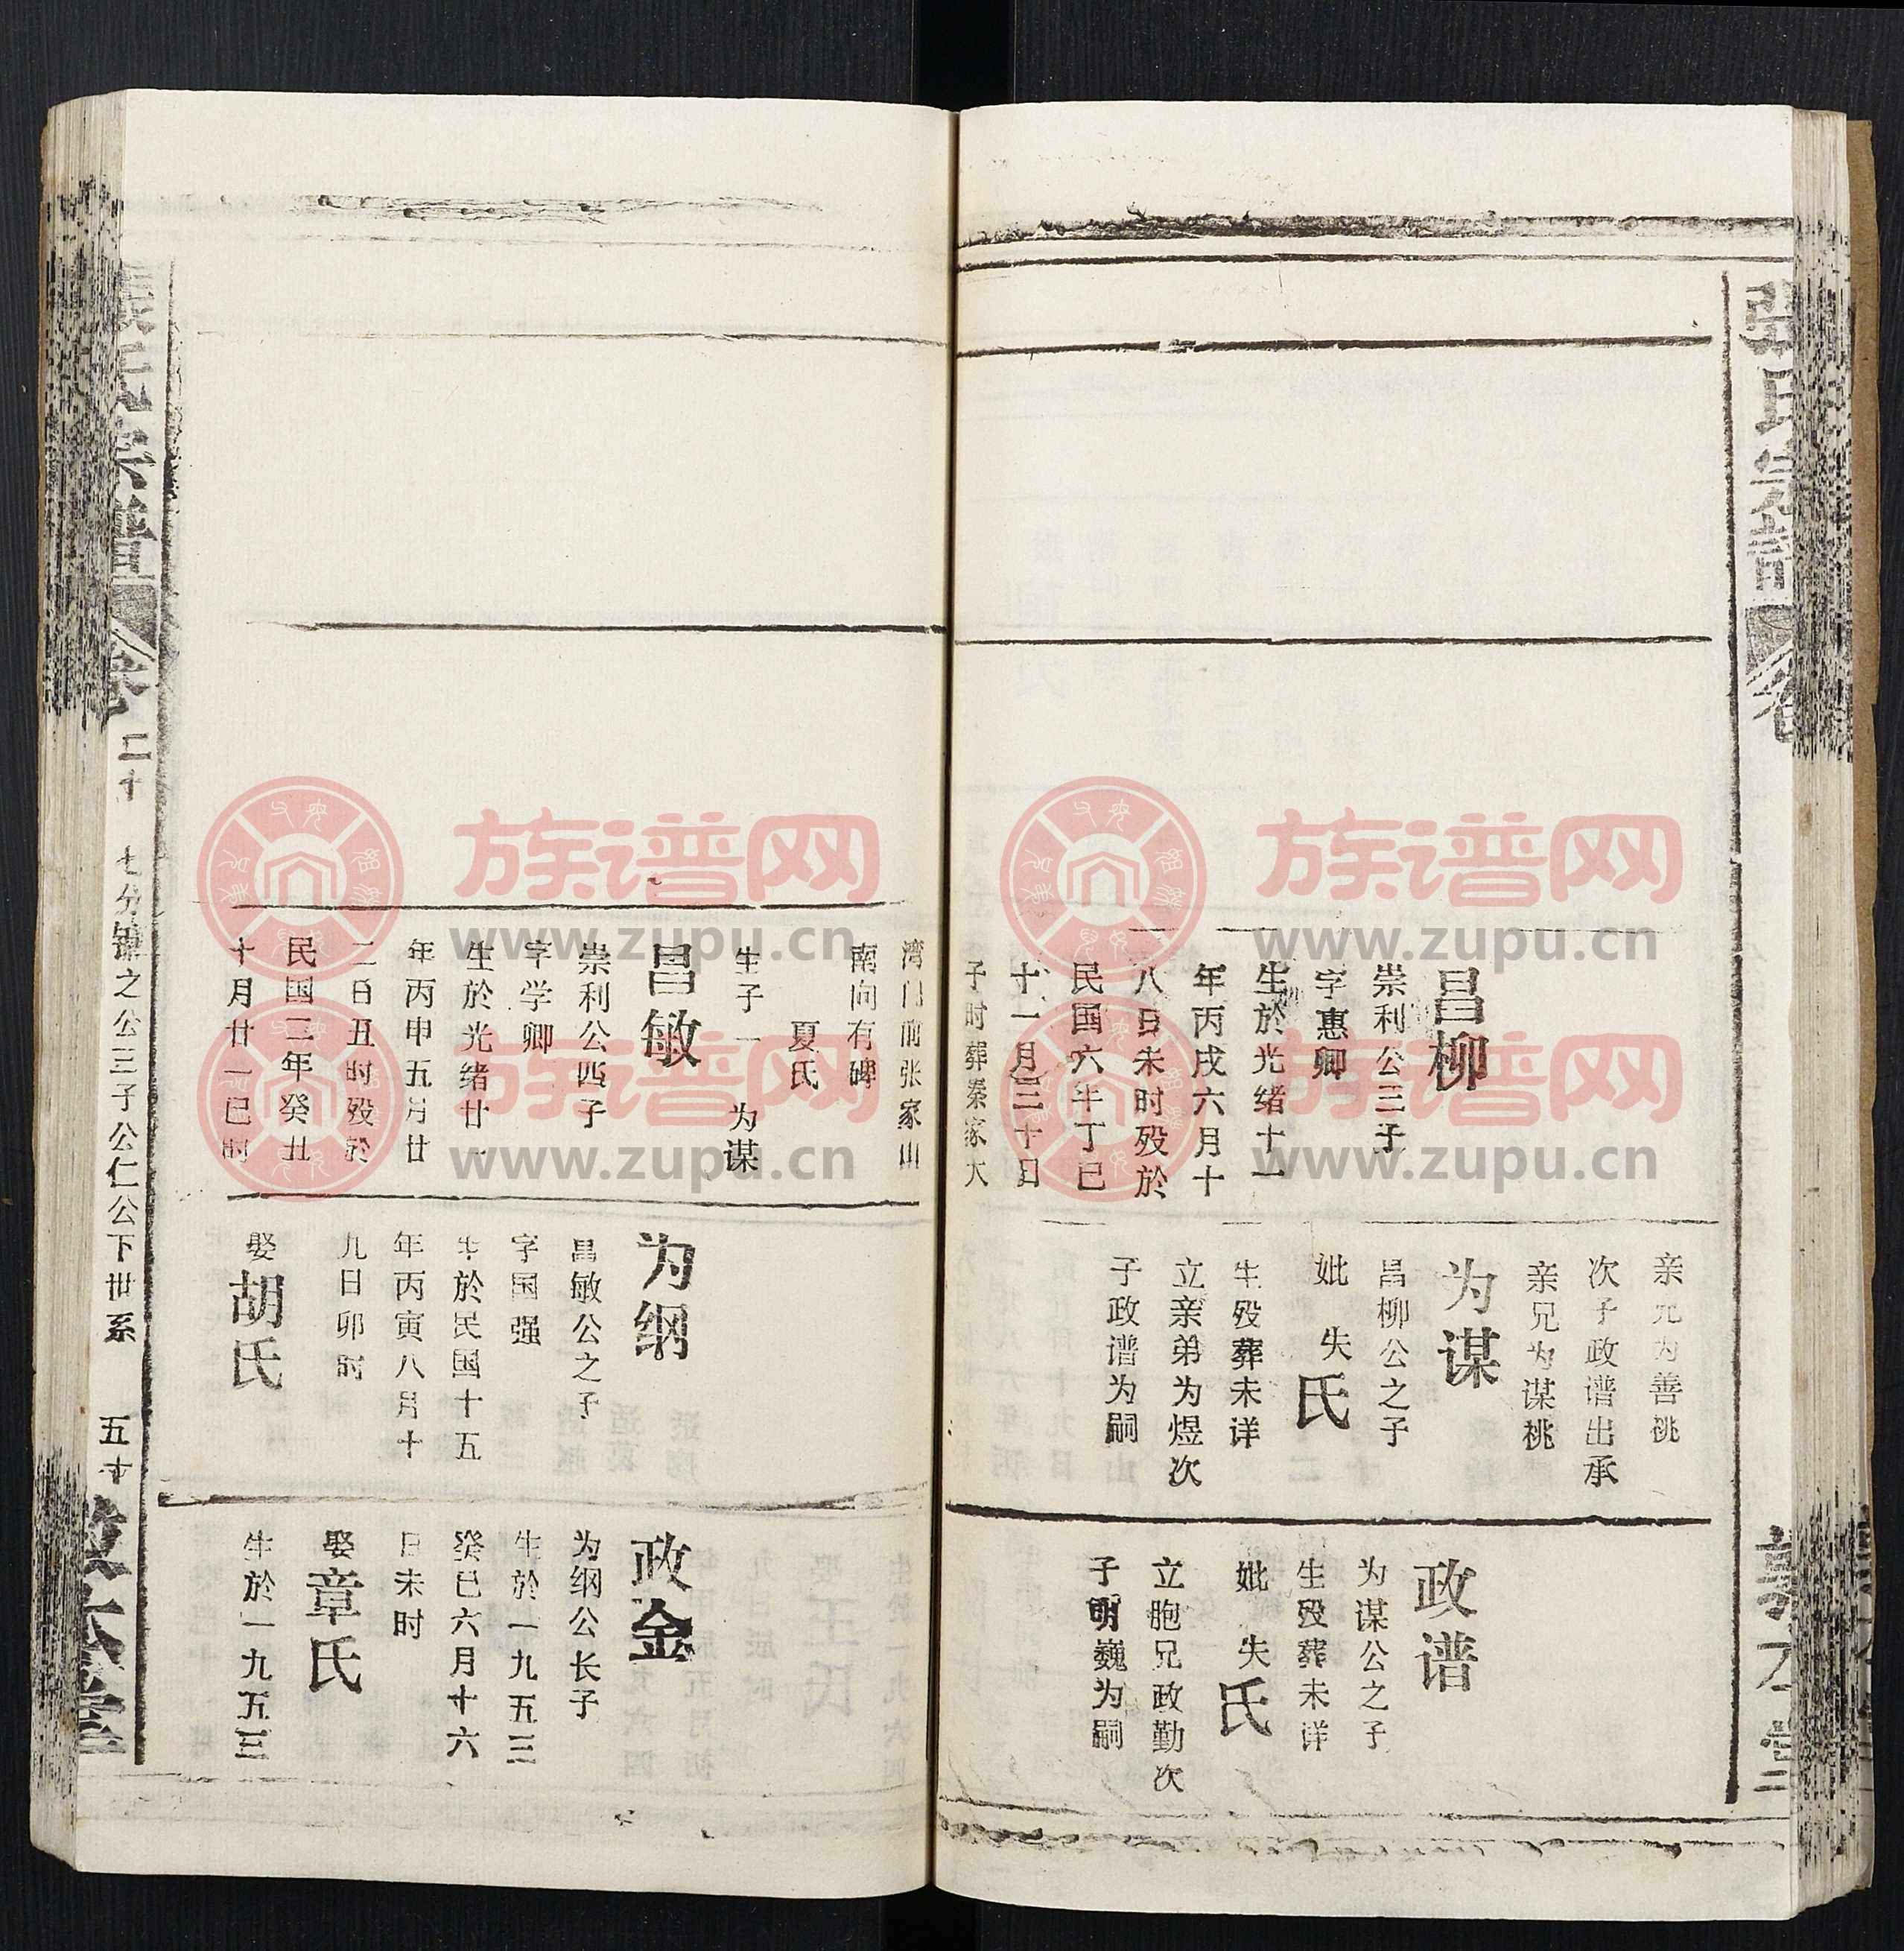 张氏宗谱
卷
敦本堂
昌柳
崇利公三子
字惠卿
生於光绪十一
年丙戌六月十
八日未时殁於
民国六年丁巳
十一月二十日
子时葬秦家大
亲兄为善祧
次子政谱出承
亲兄为谋祧
为谋
昌柳公之子
妣 失氏
生殁葬未详
立亲弟为煜次
子政谱为嗣
政谱
为谋公之子
生殁葬未详
妣 失氏
立胞兄政勤次
子明巍为嗣
湾门前张家山
南向有碑
夏氏
生子一 为谋
昌敏
崇利公四子
字学卿
生於光绪廿一
年丙申五月廿
二日丑时殁於
民国二年癸丑
十月廿一巳时
为纲
昌敏公之子
字国强
生於民国十五
年丙寅八月十
九日卯时
娶胡氏
政金
为纲公长子
生於一九五三
癸巳六月十六
日未时
娶章氏
生於一九五三
張氏宗譜
卷二十
七分镛之公三子公仁公下世系
五十
敦本堂
族谱网
www.zupu.cn
www.zupu.cn
族谱网
www.zupu.cn
www.zupu.cn